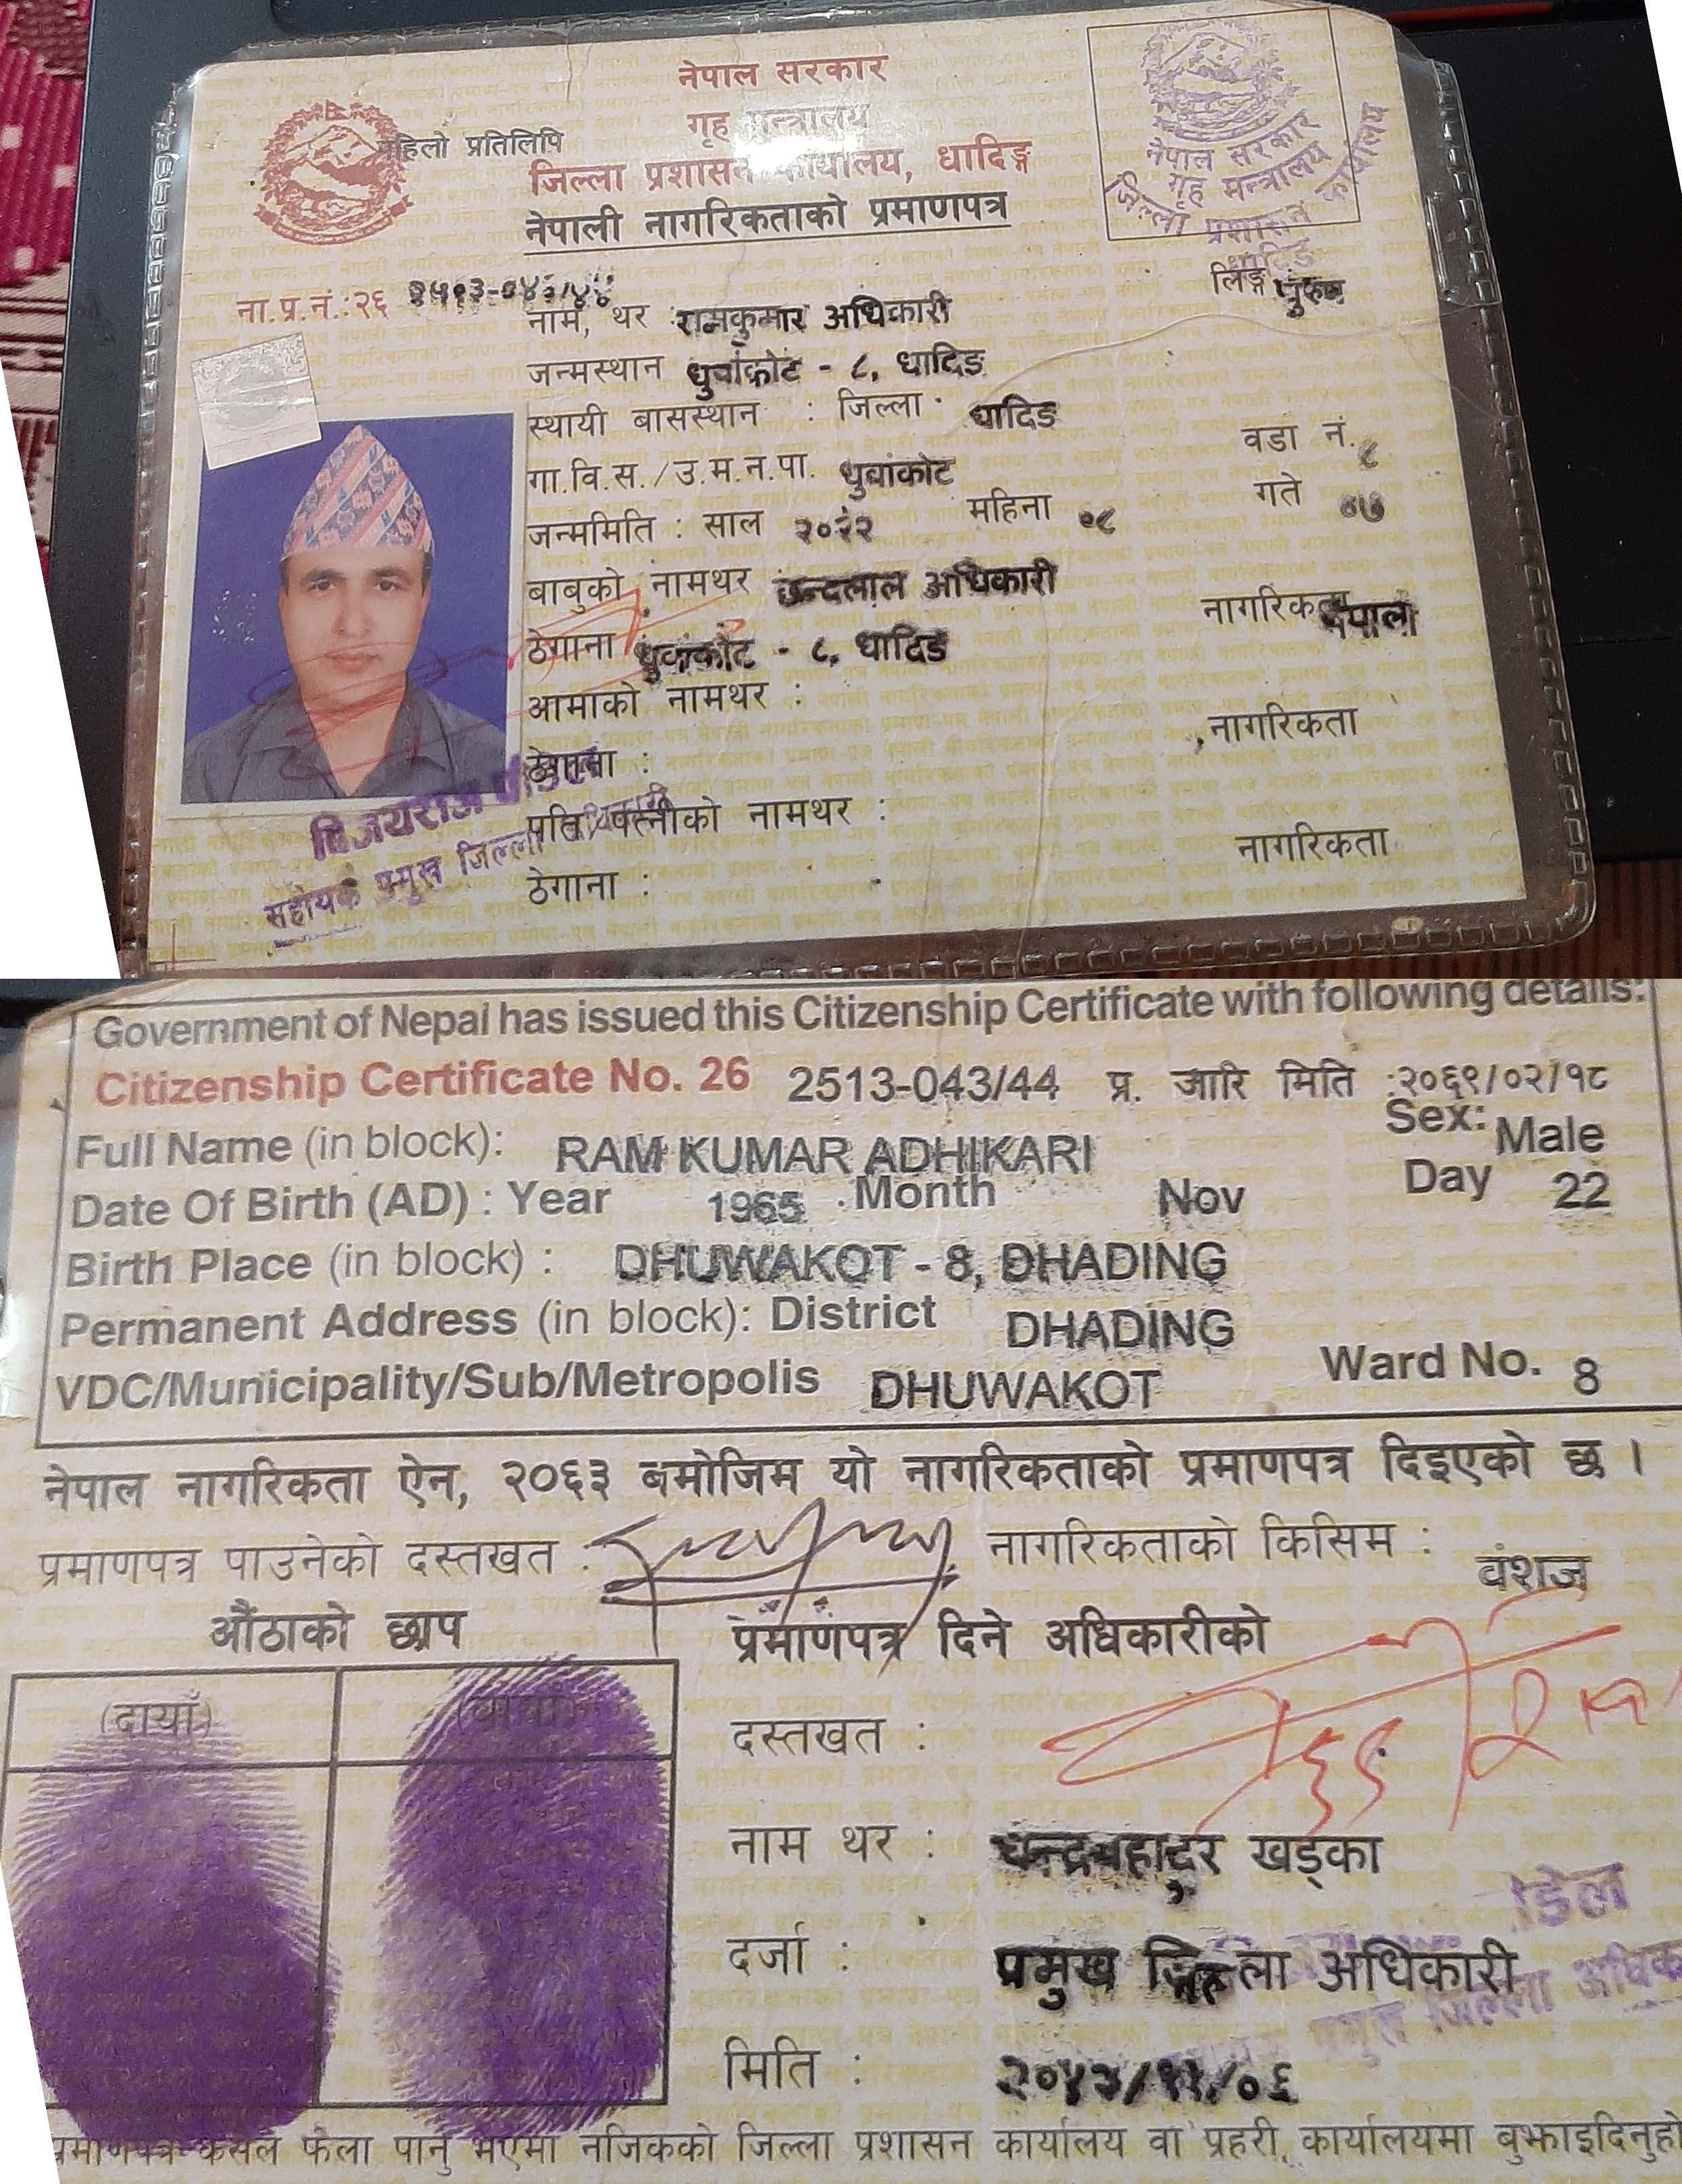 नेपाल सरकार
गृह मन्त्रालय
पहिलो प्रतिलिपि
जिल्ला प्रशासन कार्यालय, धादिङ्ग
नेपाली नागरिकताको प्रमाणपत्र
नेपाल सरकार
गृह मन्त्रालय
जिल्ला प्रशासन कार्यालय
धादिङ
ना.प्र.नं.:२६ २५१३-०४३/४४
लिङ्ग पुरुष
नाम, थर रामकुमार अधिकारी
जन्मस्थान धुवांकोट - ८, धादिङ
स्थायी बासस्थान : जिल्ला धादिङ
गा.वि.स./उ.म.न.पा. धुवांकोट वडा नं. ८
जन्ममिति : साल २०२२ महिना ०८ गते ०७
बाबुको नामथर छन्दलाल अधिकारी
ठेगाना धुवांकोट - ८, धादिङ नागरिकता नेपाली
आमाको नामथर :
ठेगाना : नागरिकता
पति/पत्नीको नामथर :
ठेगाना : नागरिकता
विजयराज
सहायक प्रमुख जिल्ला अधिकारी
Government of Nepal has issued this Citizenship Certificate with following details:
Citizenship Certificate No. 26 2513-043/44 प्र. जारि मिति :२०६९/०२/१८
Full Name (in block): RAM KUMAR ADHIKARI Sex: Male
Date Of Birth (AD) : Year 1965 Month Nov Day 22
Birth Place (in block) : DHUWAKOT - 8, DHADING
Permanent Address (in block): District DHADING
VDC/Municipality/Sub/Metropolis DHUWAKOT Ward No. 8
नेपाल नागरिकता ऐन, २०६३ बमोजिम यो नागरिकताको प्रमाणपत्र दिइएको छ ।
प्रमाणपत्र पाउनेको दस्तखत : नागरिकताको किसिम : वंशज
औंठाको छाप
प्रमाणपत्र दिने अधिकारीको
(दायाँ) (बायाँ)
दस्तखत :
नाम थर : चन्द्रबहादुर खड्का
दर्जा : प्रमुख जिल्ला अधिकारी
मिति : २०४३/११/०६
प्रमाणपत्र कसैले फेला पार्नु भएमा नजिकको जिल्ला प्रशासन कार्यालय वा प्रहरी कार्यालयमा बुझाइदिनुहो